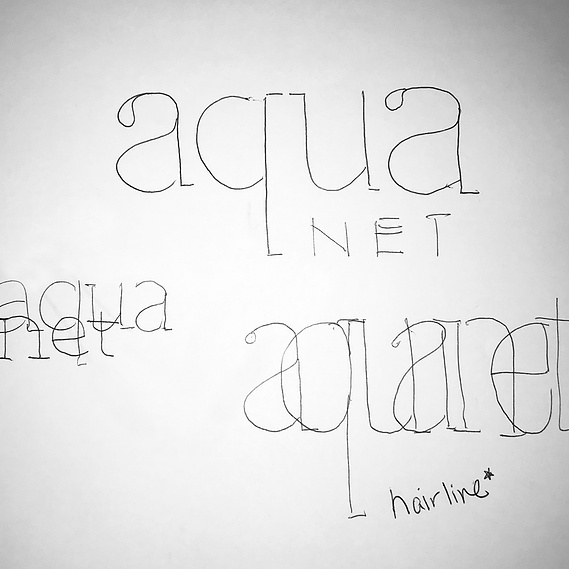 aqua
NET
aqua
net
aquanet
hairline*